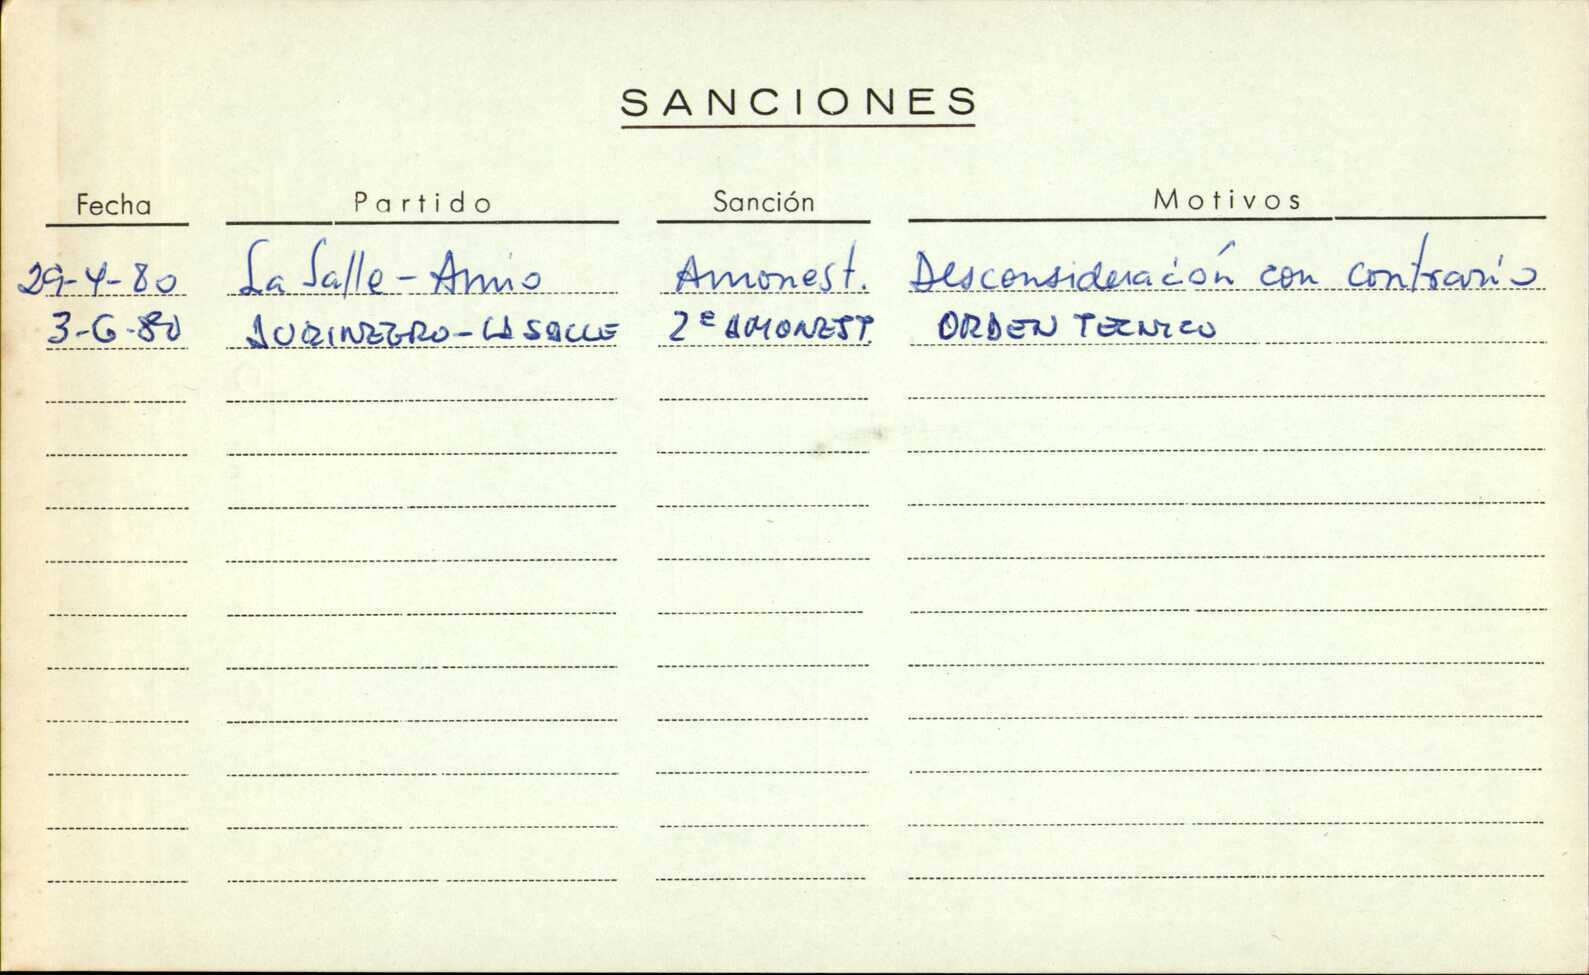 SANCIONES
Fecha Partido Sanción Motivos
29-4-80 La Salle - Anio Amonest. Desconsideración con contrario
3-6-80 AURINEGRO - LA SALLE 2ª AMONEST. ORDEN TECNICO